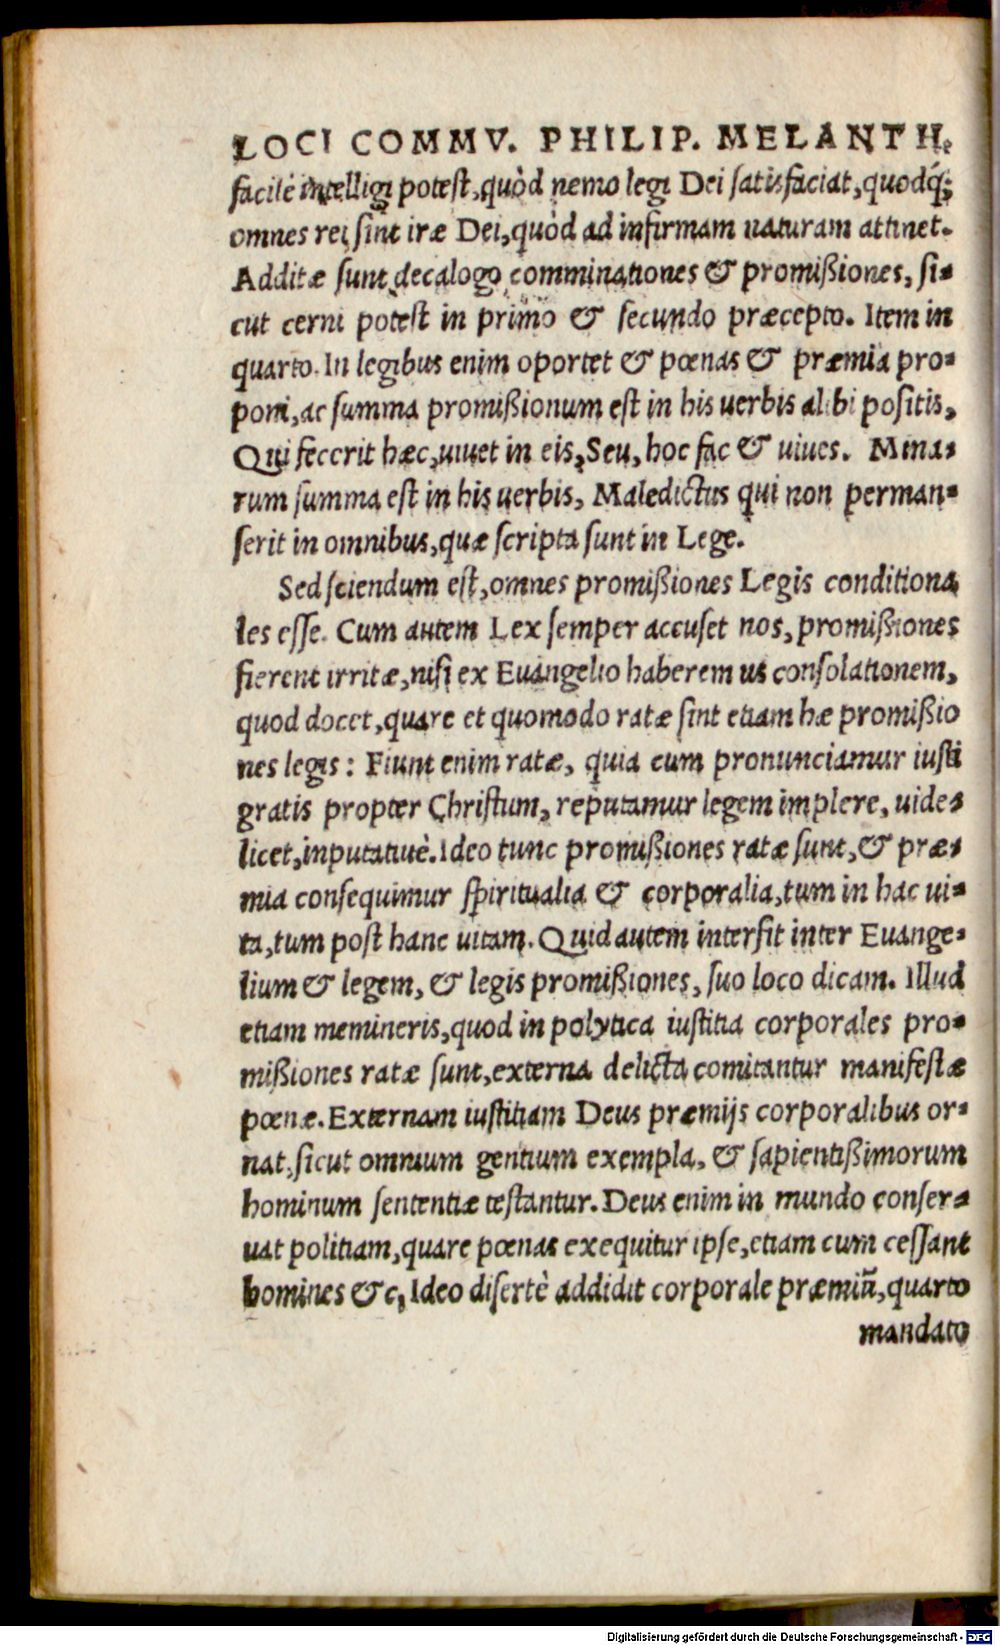 LOCI COMMV. PHILIP. MELANTH.
facilè intelligi potest, quòd nemo legi Dei satisfaciat, quodq́;
omnes rei sint iræ Dei, quòd ad infirmam naturam attinet.
Additæ sunt decalogo comminationes & promißiones, si-
cut cerni potest in primo & secundo præcepto. Item in
quarto. In legibus enim oportet & pœnas & præmia pro-
poni, ac summa promißionum est in his uerbis alibi positis,
Qui fecerit hæc, uiuet in eis, Seu, hoc fac & uiues. Mina-
rum summa est in his uerbis, Maledictus qui non perman-
serit in omnibus, quæ scripta sunt in Lege.
Sed sciendum est, omnes promißiones Legis conditiona
les esse. Cum autem Lex semper accuset nos, promißiones
fierent irritæ, nisi ex Euangelio haberem us consolationem,
quod docet, quare et quomodo ratæ sint etiam hæ promißio
nes legis: Fiunt enim ratæ, quia cum pronunciamur iusti
gratis propter Christum, reputamur legem implere, uide-
licet, inputatiuè. Ideo tunc promißiones ratæ sunt, & præ-
mia consequimur spiritualia & corporalia, tum in hac ui-
ta, tum post hanc uitam. Quid autem intersit inter Euange-
lium & legem, & legis promißiones, suo loco dicam. Illud
etiam memineris, quod in polytica iustitia corporales pro-
mißiones ratæ sunt, externa delicta comitantur manifestæ
pœnæ. Externam iustitiam Deus præmijs corporalibus or-
nat, sicut omnium gentium exempla, & sapientißimorum
hominum sententiæ testantur. Deus enim in mundo conser-
uat politiam, quare pœnas exequitur ipse, etiam cum cessant
homines &c, Ideo disertè addidit corporale præmiũ, quarto
mandato
Digitalisierung gefördert durch die Deutsche Forschungsgemeinschaft - DFG